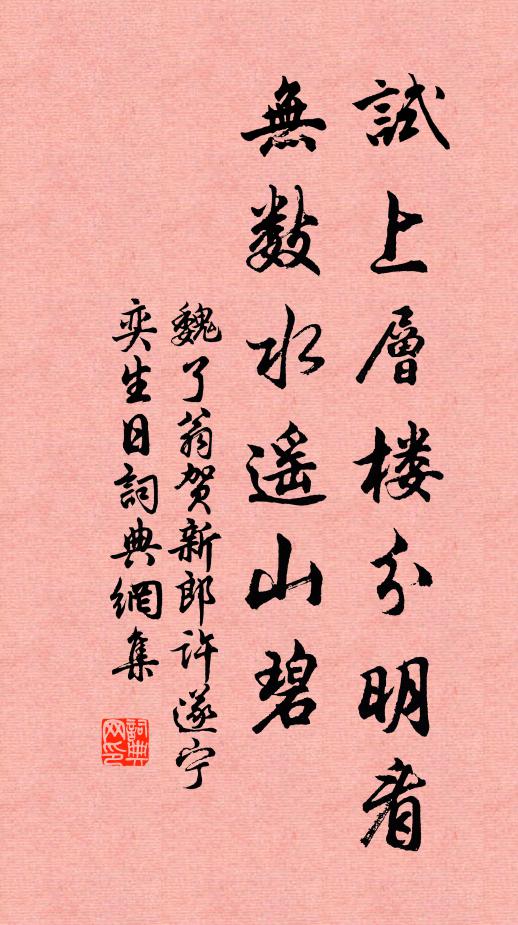 試上層楼分明看
無數水遥山碧
魏了翁賀新郎許遂宁
奕生日詞典網集
詞典
网印